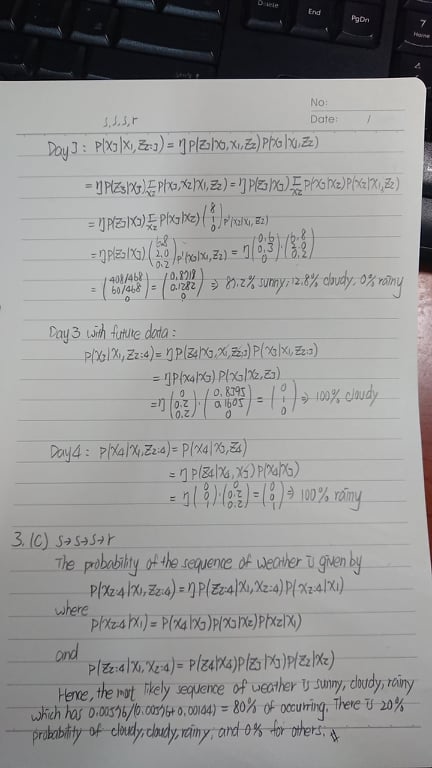 Delete
End
PgDn
7
Home
4
No:
Date: /
s,s,s,r
Day3: P(x3|x1,z2:3) = ηP(z3|x3,x1,z2)P(x3|x1,z2)
= ηP(z3|x3) Σx2 P(x3,x2|x1,z2) = ηP(z3|x3) Σx2 P(x3|x2)P(x2|x1,z2)
= ηP(z3|x3) Σx2 P(x3|x2) (8 1 0) P'(x2|x1,z2)
= ηP(z3|x3) (6.8 2.0 0.2) P'(x3|x1,z2) = η(0.6 0.3 0)·(6.8 2.0 0.2)
= (408/468 60/468 0) = (0.8718 0.1282 0) ⇒ 87.2% sunny, 12.8% cloudy, 0% rainy
Day3 with future data:
P(x3|x1,z2:4) = ηP(z4|x3,x1,z2:3)P(x3|x1,z2:3)
= ηP(x4|x3)P(x3|x2,z3)
= η(0 0.2 0.2)·(0.8395 0.1605 0) = (0 1 0) ⇒ 100% cloudy
Day4: P(x4|x1,z2:4) = P(x4|x3,z4)
= ηP(z4|x4,x3)P(x4|x3)
= η(0 0 1)·(0 0.2 0.2) = (0 0 1) ⇒ 100% rainy
3. (c) s→s→s→r
The probability of the sequence of weather is given by
P(x2:4|x1,z2:4) = ηP(z2:4|x1,x2:4)P(x2:4|x1)
where
P(x2:4|x1) = P(x4|x3)P(x3|x2)P(x2|x1)
and
P(z2:4|x1,x2:4) = P(z4|x4)P(z3|x3)P(z2|x2)
Hence, the most likely sequence of weather is sunny, cloudy, rainy
which has 0.00576/(0.00576+0.00144) = 80% of occurring. There is 20%
probability of cloudy, cloudy, rainy, and 0% for others.